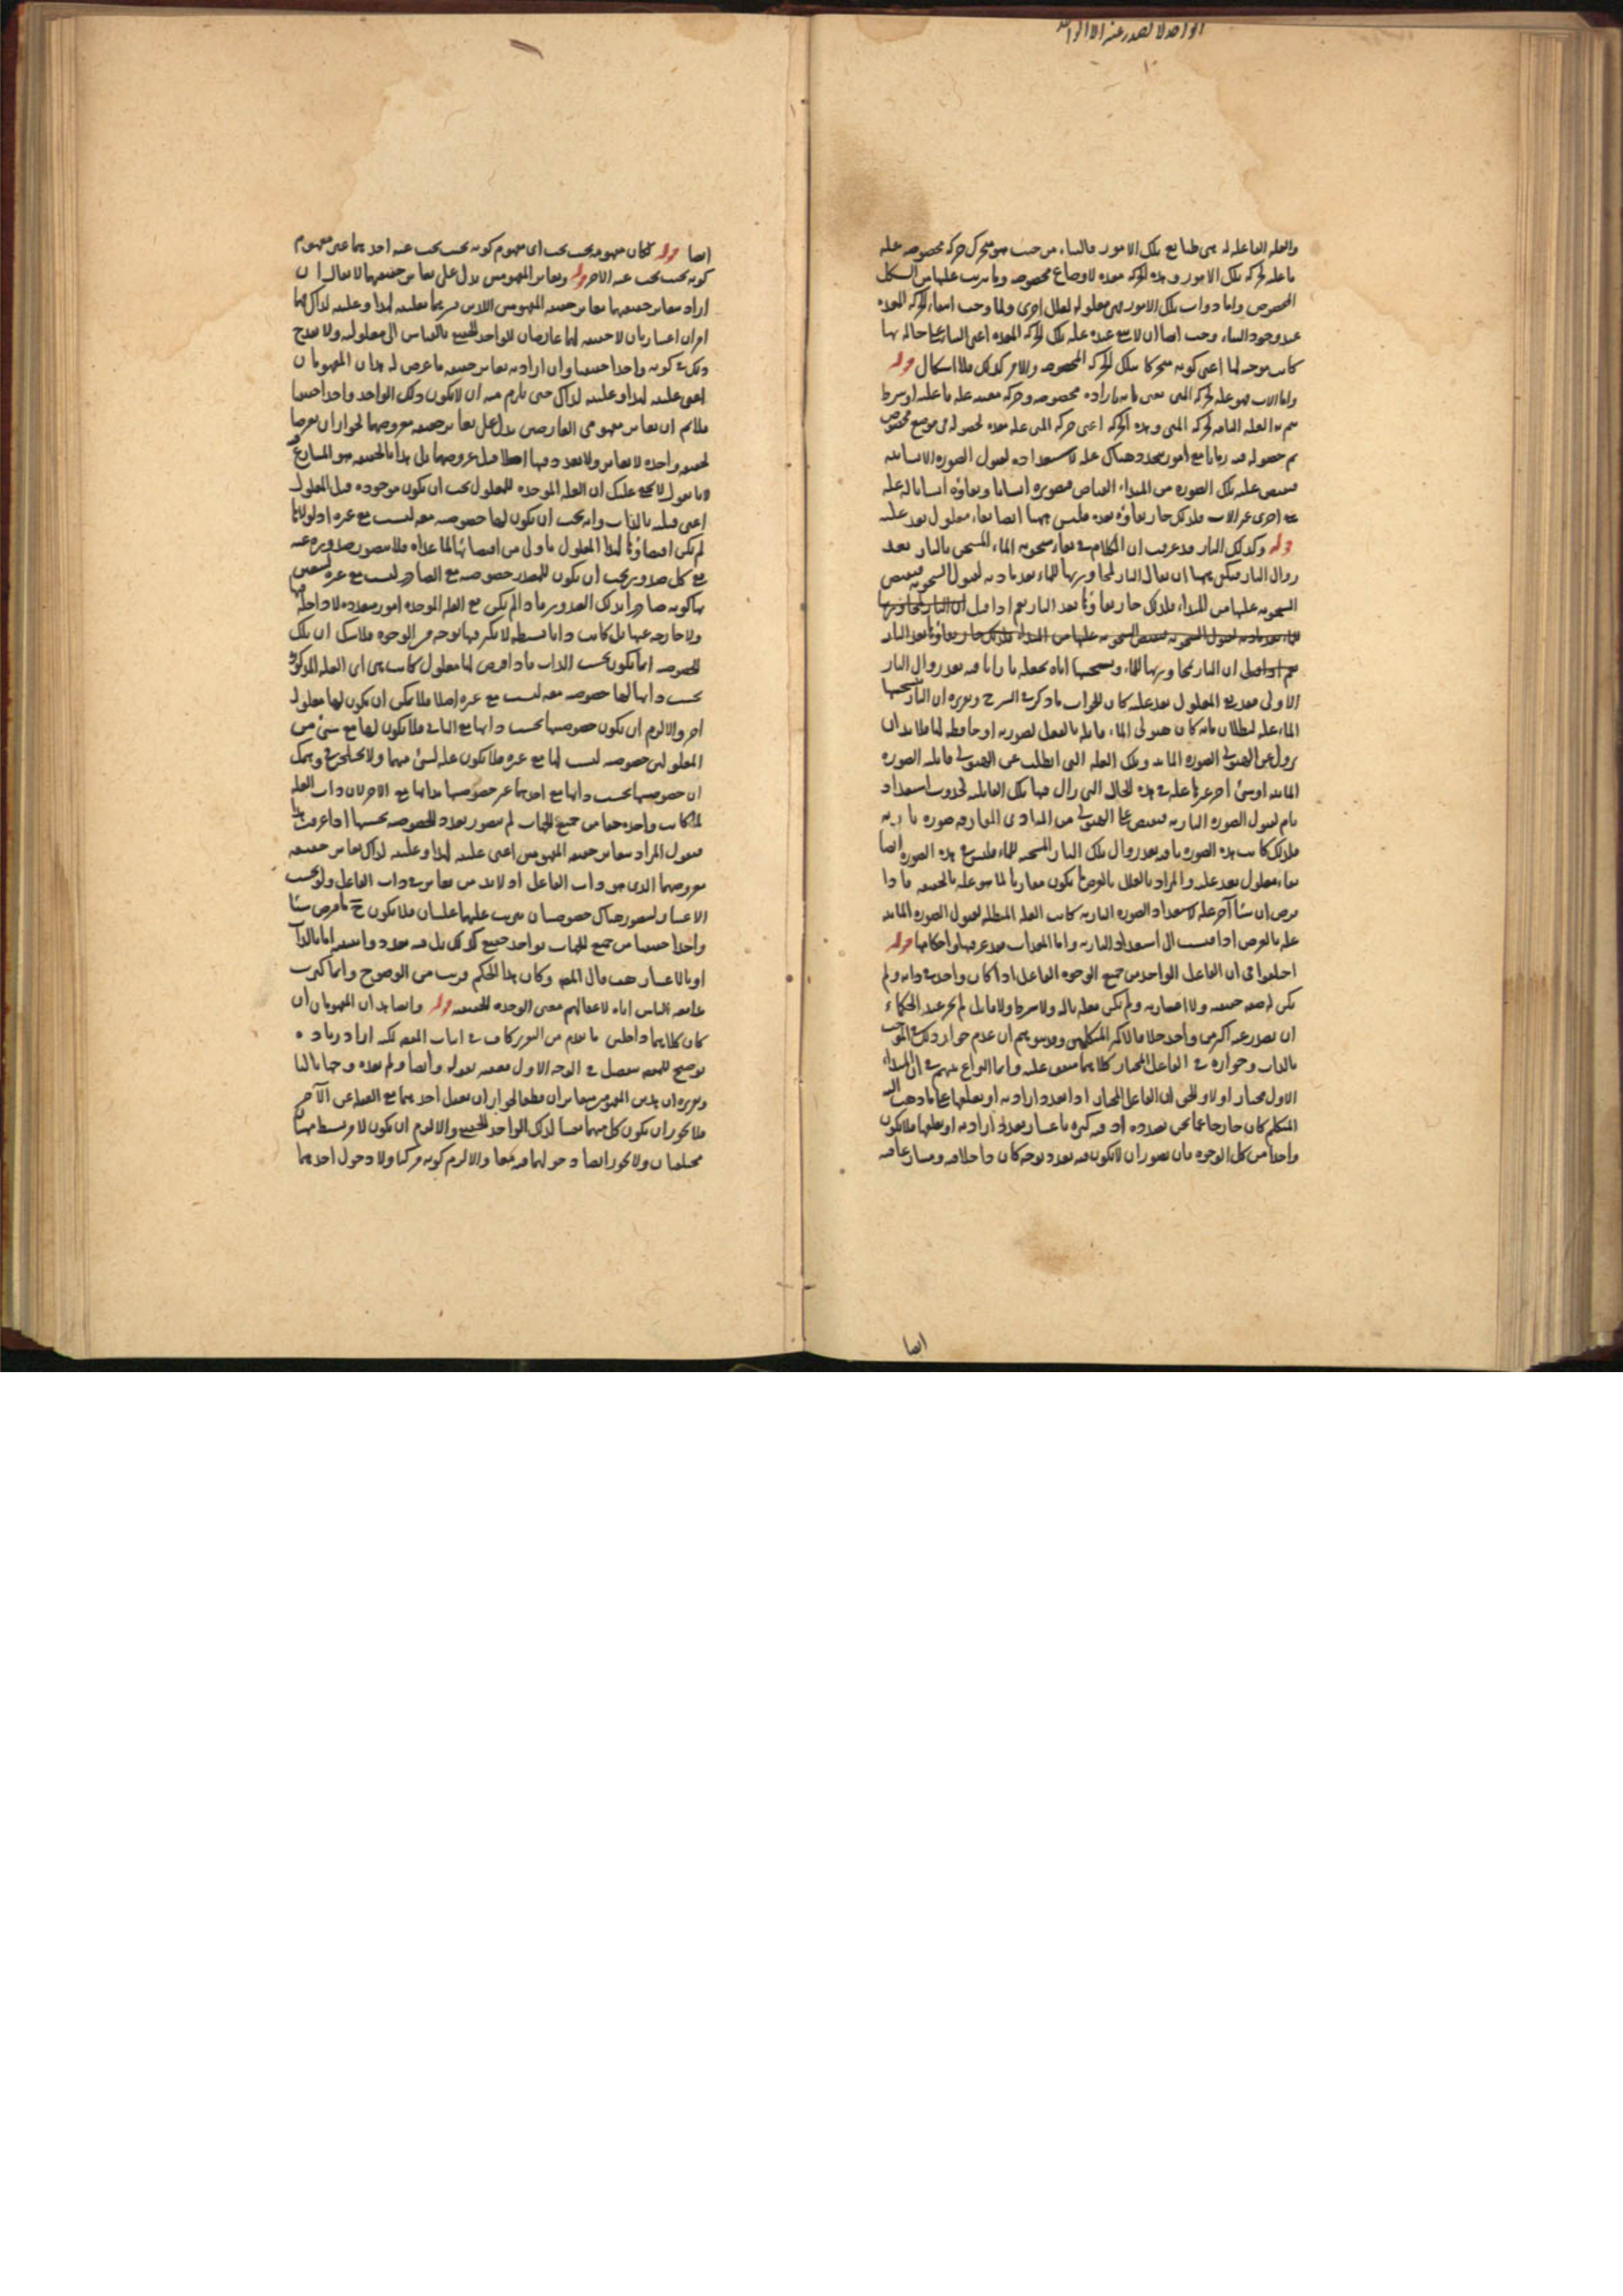 الواحد لا يصدر عنه الا الواحد
والعله الفاعليه له هى طبايع تلك الامور فالبناء من حيث هو متحرك حركه مخصوصه عله
ما عله لحركه تلك الامور وهذه الحركه معده لاوضاع مخصوصه وما يترتب عليها من الشكل
المخصوص واما ذوات تلك الامور فهى معلوله لعلل اخرى ولما وجب انتفاء الحركه المعده
عند وجود البناء وجب ايضا ان لا يبقى عنده عله تلك الحركه المعده اعنى البناء على حاله بها
كانت موجبه لها اعنى كونه متحركا بتلك الحركه المخصوصه والامر كذلك فلا اشكال قوله
واما الاب فهو عله لحركه المنى
ثم هذا العله التامه لحركه المنى وهذه الحركه اعنى حركه المنى عله معده لحصوله فى موضع مخصوص
ثم حصوله فيه زمانا مع امور متجدده هناك عله لاستعداده لقبول الصوره الانسانيه
فيفيض عليه تلك الصوره من المبداء الفياض فيصير انسانا وبقاؤه انسانا له عله
اخرى غير الاب فلذلك جاز بقاؤه بعده فليس ههنا ايضا بقاء معلول بعد علته
قوله وكذلك النار قد عرفت ان الكلام فى بقاء سخونه الماء المتسخن بالنار بعد
زوال النار فيمكن ههنا ان يقال النار لمجاورتها للماء تعد مادته لقبول السخونه فيفيض
السخونه عليها من المبداء فلذلك جاز بقاؤها بعد النار ثم اذا قيل ان النار لمجاورتها
للماء تعد مادته لقبول السخونه فيفيض السخونه عليها من المبداء فلذلك جاز بقاؤها بعد النار
ثم اذا قيل ان النار لمجاورتها للماء وتسخينها اياه تجعله نارا باقيه بعد زوال النار
الاولى فقد بقى المعلول بعد علته كان الجواب ما ذكر فى الشرح وتقريره ان النار تسخينها
الماء عله لبطلان ما به كان هيولى الماء قابله بالفعل لصورته او حافظه لها فلا بد ان
يزول عن الهيولى الصوره المائيه وتلك العله التى ابطلت عن الهيولى قابليه الصوره
المائيه او شئ اخر غيرها عله فى هذه الحال التى زال فيها تلك القابليه لحدوث استعداد
تام لقبول الصوره الناريه فيفيض على الهيولى من المبادى المفارقه صوره ناريه
فلذلك كانت هذه الصوره باقيه بعد زوال تلك النار المسخنه للماء فليس فى هذه الصوره ايضا
بقاء معلول بعد علته والمراد بالعلل بالعرض ما يكون مقارنا لما هو عله بالحقيقه فاذا
فرض ان شيئا آخر عله لاستعداد الصوره الناريه كانت العله المبطله لقبول الصوره المائيه
عله بالعرض اذا قيست الى استعداد الناريه واما المعدات فقد عرفتها واحكامها قوله
اختلفوا فى ان الفاعل الواحد من جميع الوجوه الفاعل اذا كان واحدا فى ذاته ولم
يكن له صفه حقيقيه ولا اعتباريه ولم يكن فعله بآله ولا شرط ولا قابل لم يجز عند الحكماء
ان يصدر عنه اكثر من واحد خلافا لاكثر المتكلمين وقد يتوهم ان عدم جواز ذلك فى الموجب
بالذات وجوازه فى الفاعل المختار كلاهما متفق عليه وانما النزاع بينهم فى ان المبداء
الاول مختار او لا والحق ان الفاعل المختار اذا تعدد ارادته او تعلقها على ما ذهب اليه
المتكلم كان خارجا عما نحن بصدده اذ فيه كثره باعتبار تعدد ارادته او تعلقها فلا يكون
واحدا من كل الوجوه فان تصور ان لا يكون فيه تعدد بوجه كان داخلا فيه ومتنازعا فيه
ايضا
ايضا قوله لكان مفهوم يجب يجب اى مفهوم كونه بحيث يجب عنه احدهما غير مفهوم
كونه بحيث يجب عنه الاخر قوله وتغاير المفهومين يدل على تغاير حقيقتهما لا يقال ان
اراد بتغاير حقيقتهما تغاير حقيقه المفهومين اللذين هما عليته لهذا وعليته لذاك فهما
امران اعتباريان لا حقيقه لهما عارضان للواحد الحقيقى بالقياس الى معلوليه ولا يقدح
ذلك فى كونه واحدا حقيقيا وان اراد به تغاير حقيقه ما عرض له هذان المفهومان
اعنى عليته لهذا وعليته لذاك حتى يلزم منه ان لا يكون ذلك الواحد واحدا حقيقيا
فلا نم ان تغاير مفهومى العارضين يدل على تغاير حقيقه معروضهما لجواز ان يعرضا
لحقيقه واحده لا تغاير ولا تعدد فيها اصلا قبل عروضهما بل هذا بالحقيقه هو المتنازع فيه
لانا نقول لا يخفى عليك ان العله الموجده للمعلول يجب ان يكون موجوده قبل المعلول
اعنى قبليه بالذات وانه يجب ان يكون لها خصوصيه معه ليست مع غيره اذ لولاها
لم يكن اقتضاؤها لهذا المعلول باولى من اقتضائها لما عداه فلا يتصور صدوره عنه
فمع كل صدور يجب ان يكون للمصدر خصوصيه مع الصادر ليست مع غيره
ولا خارجه عنها بل كانت ذاتا بسيطه لا تكثر فيها بوجه من الوجوه فلا شك ان تلك
الخصوصيه انما تكون بحسب الذات فاذا فرض لها معلول كانت هى اى العله المذكوره
بحسب ذاتها لها خصوصيه معه ليست مع غيره اصلا فلا يمكن ان يكون لها معلول
اخر والا لزم ان يكون خصوصيتها بحسب ذاتها مع الثانى فلا يكون لها مع شئ من
المعلولين خصوصيه ليست لها مع غيره فلا يكون عله لشئ منهما ولا يختلجن فى وهمك
ان خصوصيتها بحسب ذاتها مع احدهما غير خصوصيتها بذاتها مع الاخر لان ذات العله
لما كانت واحده حقا من جميع الجهات لم يتصور تعدد الخصوصيه بحسبها اذا عرفت هذا
فنقول المراد بتغاير حقيقه المفهومين اعنى عليته لهذا وعليته لذاك تغاير حقيقه
معروضهما الذى هو ذات الفاعل اذ لا بد من تغاير فى ذات الفاعل ولو بحسب
الاعتبار ليتصور هناك خصوصيتان يترتب عليهما عليتان فلا يكون ح ما فرض شيئا
واحدا حقيقيا من جميع الجهات بواحد حقيقى كذلك بل فيه تعدد واثنينيه اما بالذات
او بالاعتبار هف قال المص وكان هذا الحكم قريب من الوضوح وانما كثرت
مدافعه الناس اياه لاغفالهم معنى الوحده الحقيقيه قوله وايضا هذان المفهومان ان
كان كلاهما داخلين ما تقدم من التقرير كاف فى اثبات المص لكنه اراد زياده
توضيح للمص بتفصيل فى الوجه الاول بقوله وايضا ولم يعده وجها ثانيا
وتقريره ان هذين المفهومين متغايران قطعا لجواز ان يعقل احدهما مع الغفله عن الآخر
فلا يجوز ان يكون كل منهما نفسا لذلك الواحد الحقيقى والا لزم ان يكون لامر بسيط مهيتان
مختلفتان ولا يجوز ايضا دخولهما فيه معا والا لزم كونه مركبا ولا دخول احدهما